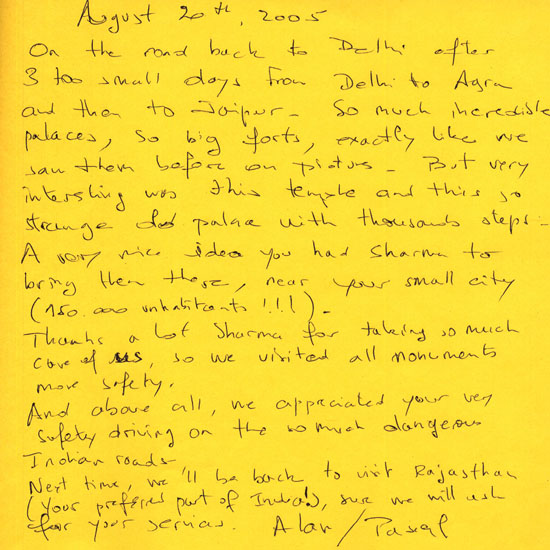 August 20th, 2005
On the road back to Delhi after
3 too small days from Delhi to Agra
and then to Jaipur - So much incredible
palaces, so big forts, exactly like we
saw them before on picture - But very
interesting was this temple and this so
strange palace with thousands steps -
A very nice idea you had Sharma to
bring them there, near your small city
(150.000 inhabitants !!!) -
Thanks a lot Sharma for taking so much
care of us, so we visited all monuments
more safety.
And above all, we appreciated your very
safety driving on the so much dangerous
Indian roads -
Next time, we'll be back to visit Rajasthan
(your preferred part of India!), sure we will ask
for your services. Alan / Pascal